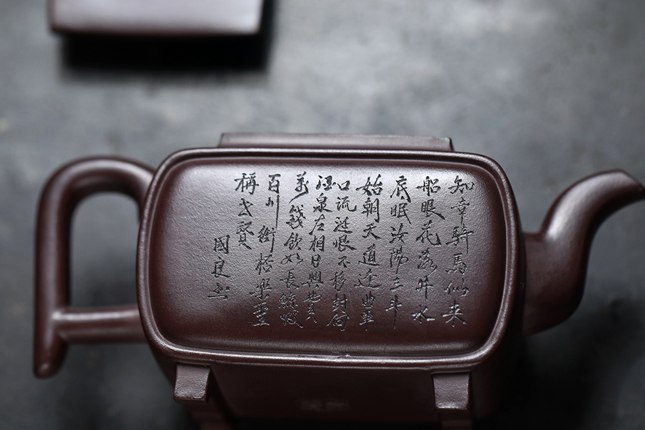 知章骑马似乘
船眼花落井水
底眠汝阳三斗
始朝天道逢曲车
口流涎恨不移封向
酒泉左相日興费
萬钱饮如長鲸吸
百川衔杯樂聖
稱世賢
國良书